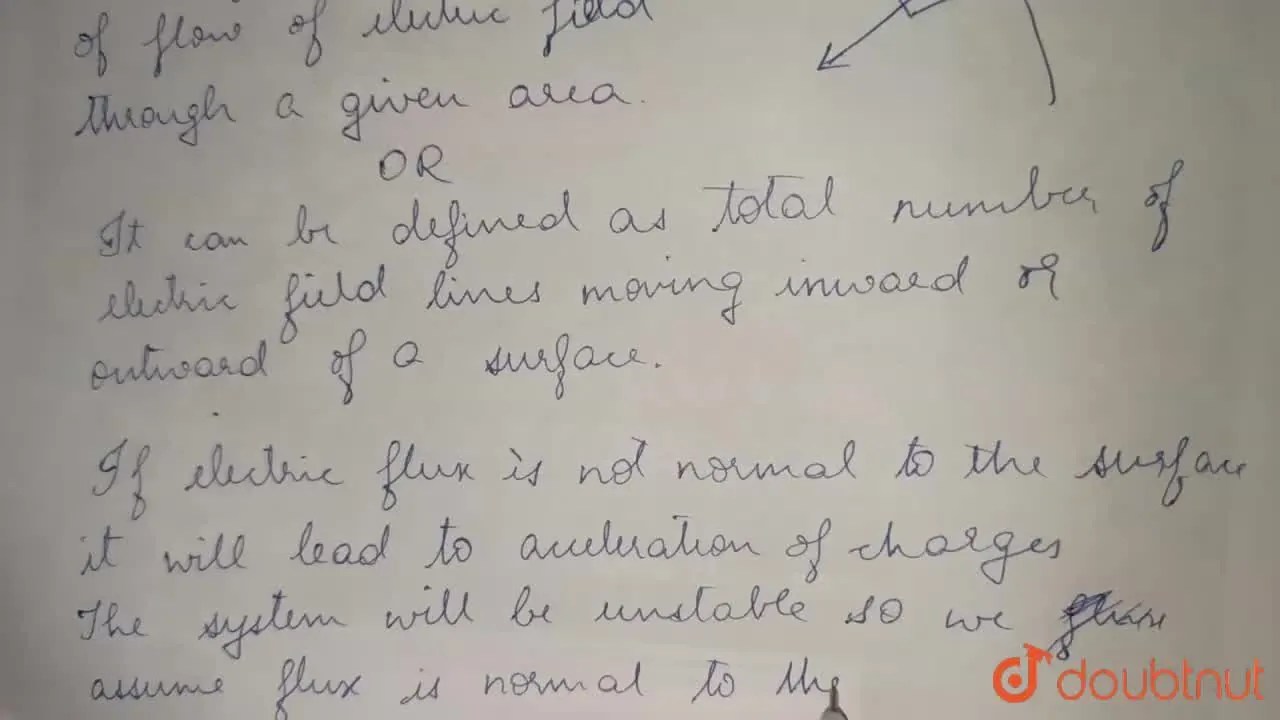 of flow of electric field
through a given area.
OR
It can be defined as total number of
electric field lines moving inward or
outward of a surface.
If electric flux is not normal to the surface
it will lead to acceleration of charges
The system will be unstable so we
assume flux is normal to the
doubtnut